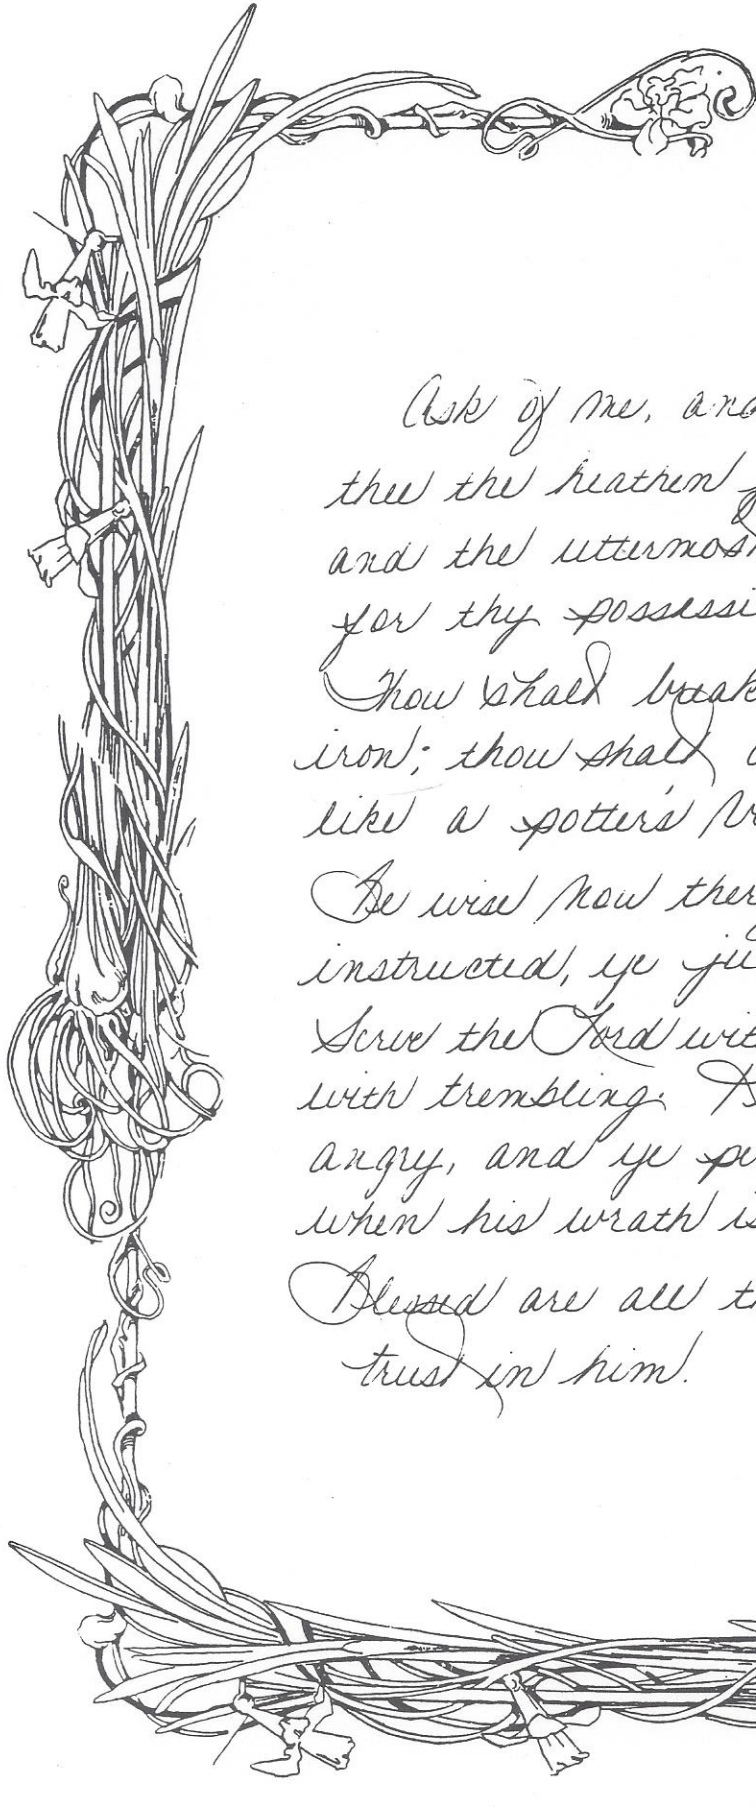 Ask of me, and
thee the heathen
and the uttermos
for thy possessi
Thou shalt break
iron; thou shalt
like a potter's
Be wise now ther
instructed, ye ju
Serve the Lord wit
with trembling.
angry, and ye pe
when his wrath is
Blessed are all th
trust in him.